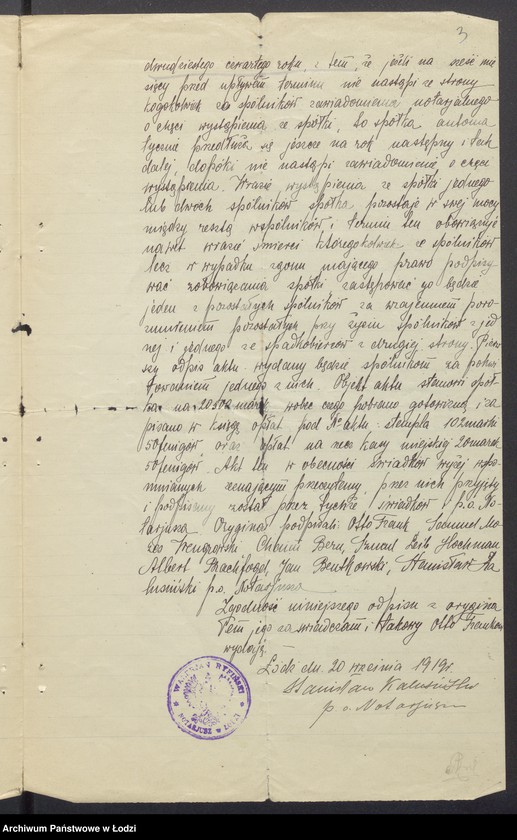 3
dwudziestego czwartego roku, z tem, że jeśli na sześć mie
sięcy przed upływem terminu nie nastąpi ze strony
kogokolwiek ze spólników zawiadomienia notarjalnego
o chęci wystąpienia ze spółki, to spółka automa
tycznie przedłuża się jeszcze na rok następny i tak
dalej, dopóki nie nastąpi zawiadomienie o chęci
wystąpienia. W razie wystąpienia ze spółki jednego
lub dwóch spólników spółka pozostaje w swej mocy
między resztą wspólników i termin ten obowiązuje
nawet w razie śmierci któregokolwiek ze spólników
lecz w wypadku zgonu mającego prawo podpisy
wać zobowiązania spółki zastępować go będzie
jeden z pozostałych spólników za wzajemnem poro
zumieniem pozostałych przy życiu spólników z jed
nej i jednego ze spadkobierców z drugiej strony. Pierw
szy odpis aktu wydany będzie spólnikom za pokwi
towaniem jednego z nich. Objekt aktu stanowi spół
ka na 20502 marek, wobec czego pobrano gotowizną i za
pisano w księgę opłat pod № aktu: stempla 102 marki
50 fenigów, oraz opłat na rzecz kasy miejskiej 20 marek
50 fenigów. Akt ten w obecności świadków wyżej wspo
mnianych zeznającym przeczytany, przez nich przyjęty
i podpisany został przez tychże świadków i p.o. No
tarjusza. Oryginał podpisali: Otto Frank, Samuel Mo
Chaim Bern, Szmul Leib Hochman
Albert Jan Bentkowski, Stanisław Ka
lusiński p.o. Notarjusza
Zgodność niniejszego odpisu z orygina
łem jego zaświadczam i takowy Otto Frankowi
wydaję.
Łódź dn. 20 września 1919 r.
Stanisław Kalusiński
p.o. Notarjusza
WALERJAN RYFIŃSKI
NOTARJUSZ w ŁODZI
Archiwum Państwowe w Łodzi